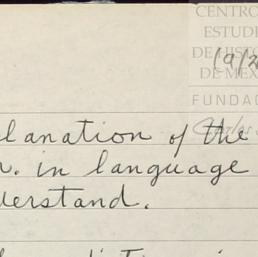 CENTRO
ESTUDI
DE HISTO
DE MÉX
FUNDAC
19/2
lanation of the
. in language
derstand.